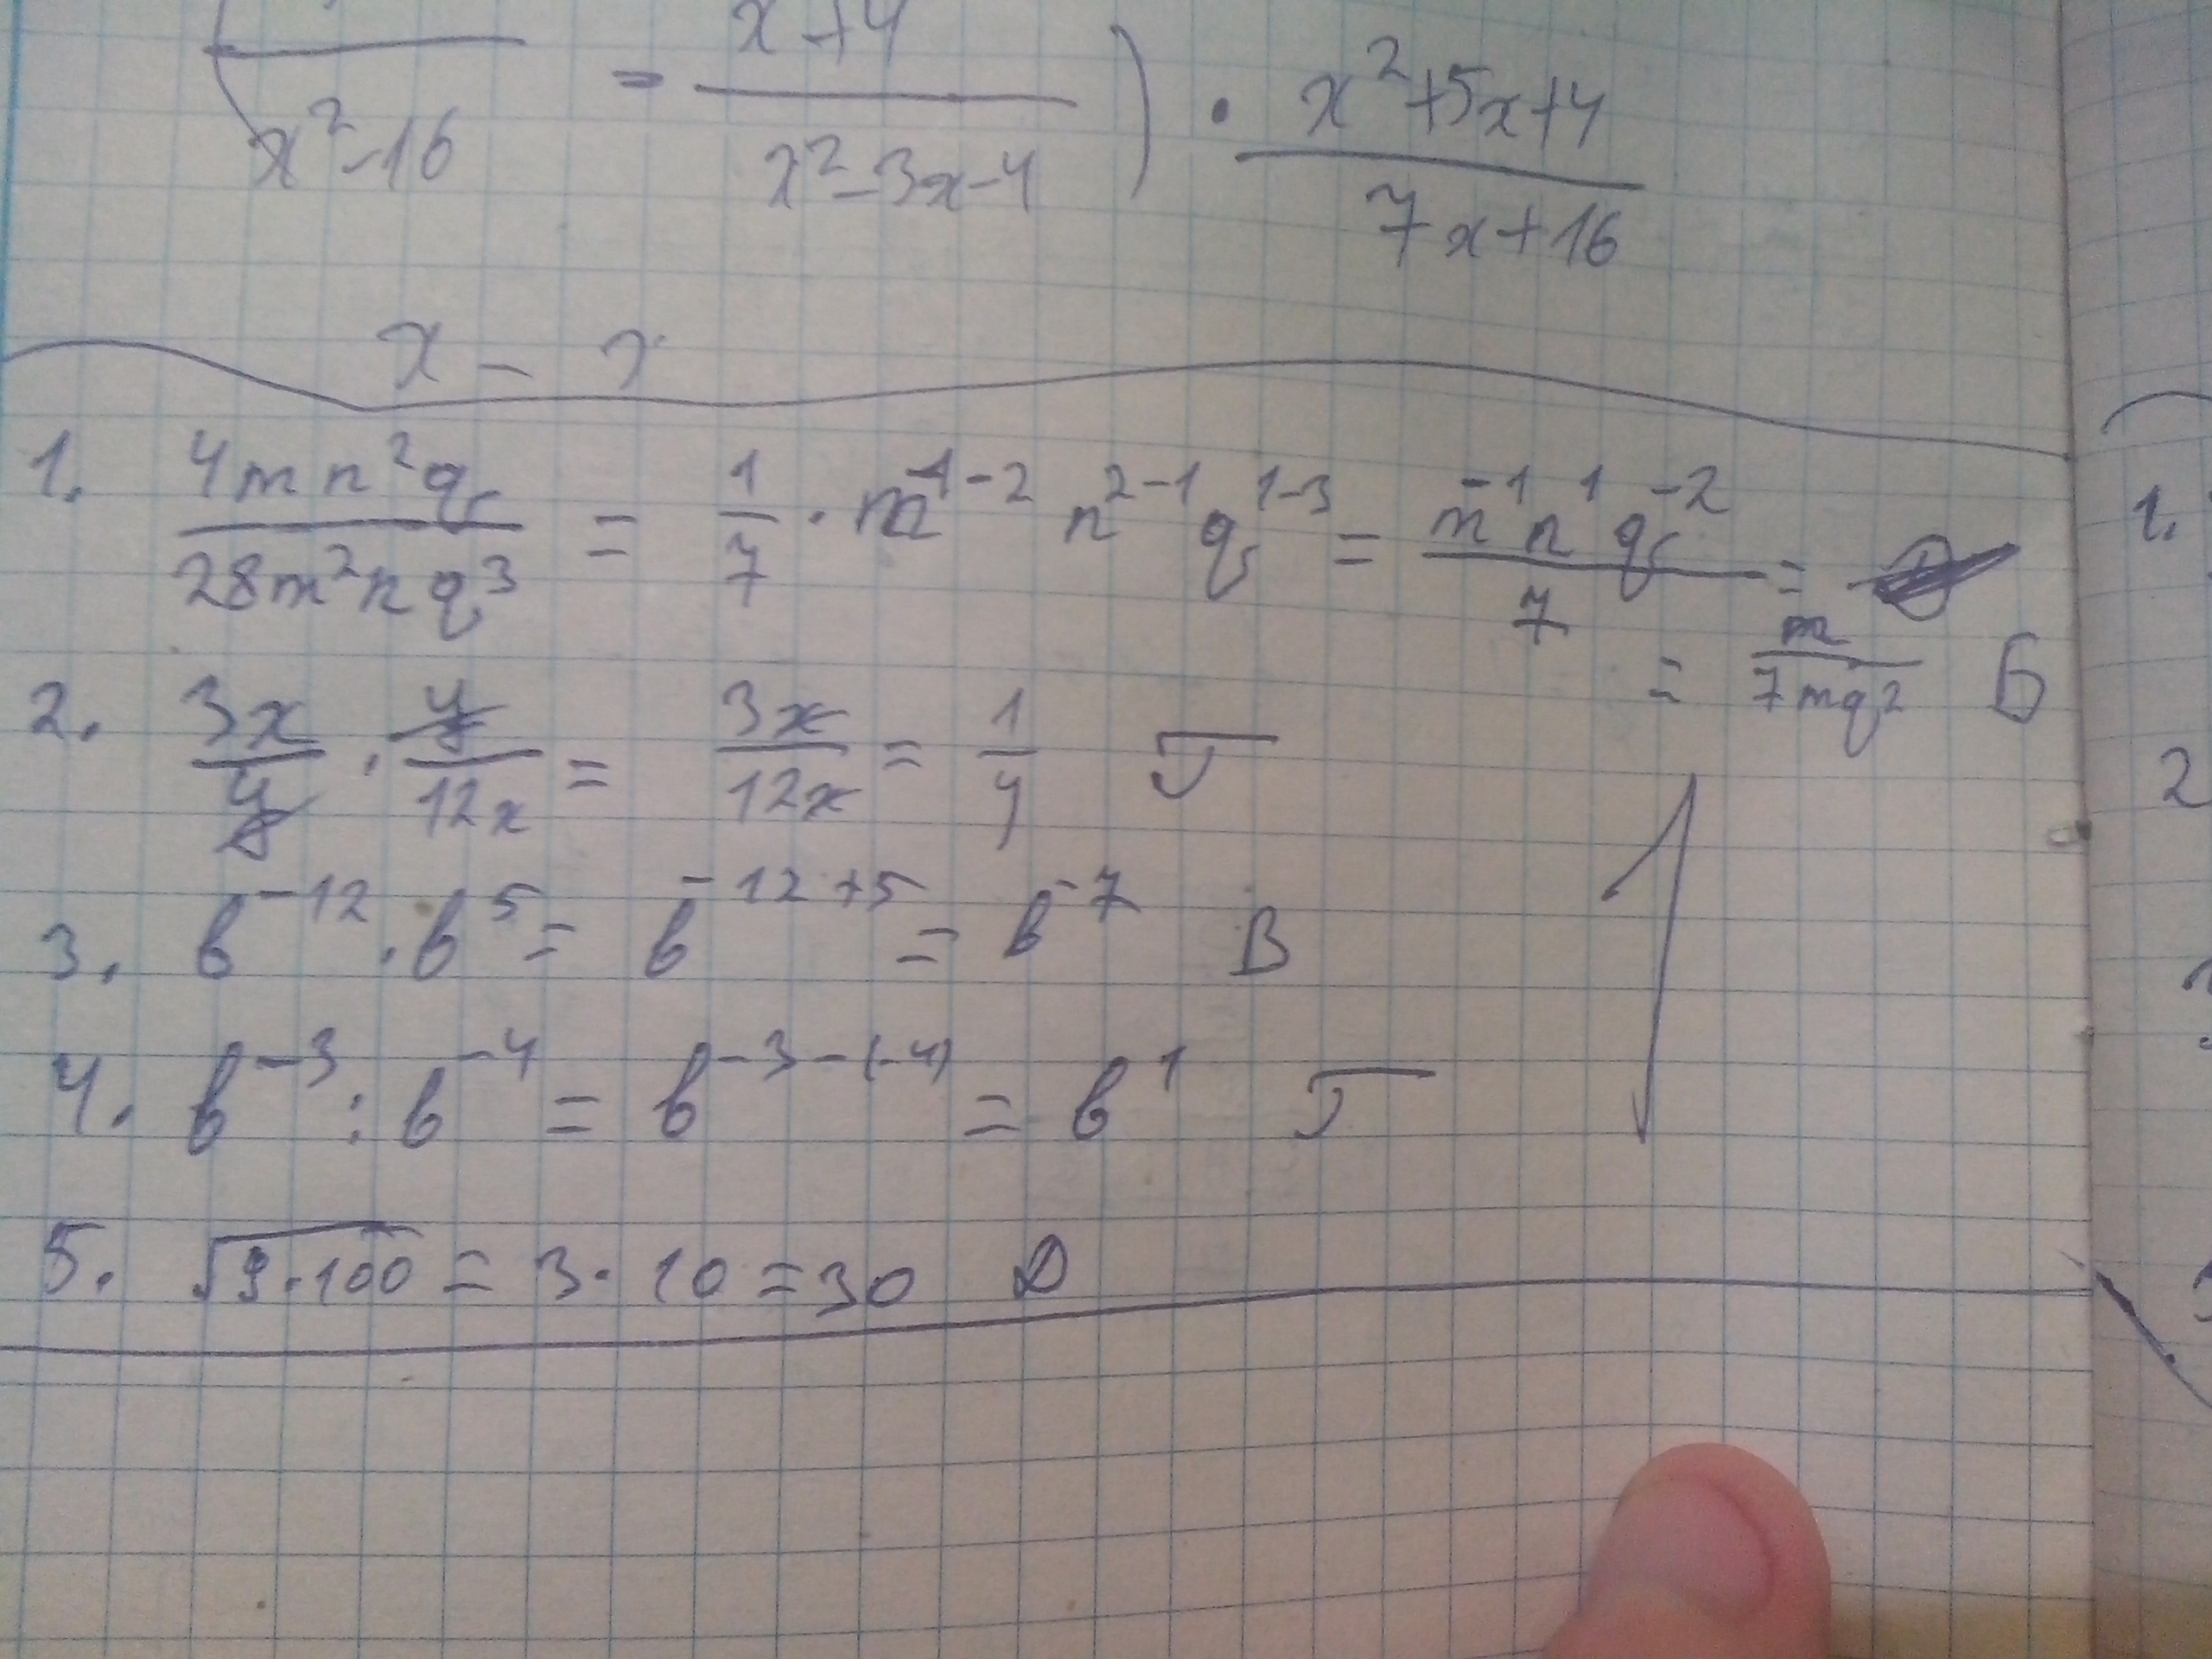 x+4
x²-16 = x²-3x-4 ) · x²+5x+4
7x+16
x -
1. 4mn²q / 28m²nq³ = 1/7 · m¹⁻² n²⁻¹ q¹⁻³ = m⁻¹n¹q⁻² / 7 =
= m / 7mq² Б
2. 3x/y · y/12x = 3x/12x = 1/4 Г
3. b⁻¹² · b⁵ = b⁻¹²⁺⁵ = b⁻⁷ В
4. b⁻³ : b⁻⁴ = b⁻³⁻⁽⁻⁴⁾ = b¹ Г
5. √9·100 = 3·10 = 30 D
1.
2